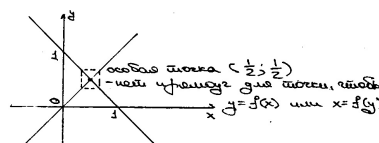 y
1
особая точка (1/2; 1/2)
-нет прямоуг для точки, чтобы
y=f(x) или x=f(y
0
1
x